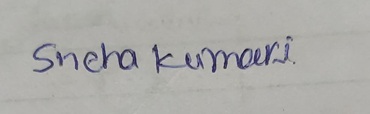 Sneha kumari.